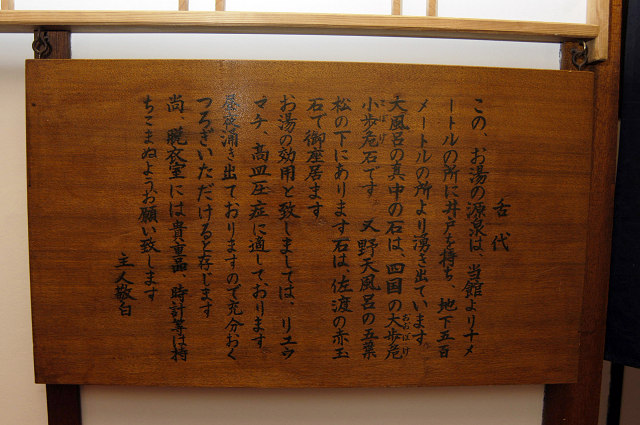 舌代
この、お湯の源泉は、当館より十メ
ートルの所に井戸を持ち、地下五百
メートルの所より湧き出ています。
大風呂の真中の石は、四国の大歩危
おおぼけ
小歩危石です。又野天風呂の五葉
こぼけ
松の下にあります石は、佐渡の赤玉
石で御座居ます。
お湯の効用と致しましては、リュウ
マチ、高血圧症に適しております。
昼夜涌き出ておりますので充分おく
つろぎいただけると存じます
尚、脱衣室には貴重品、時計等は持
ちこまぬようお願い致します
主人敬白